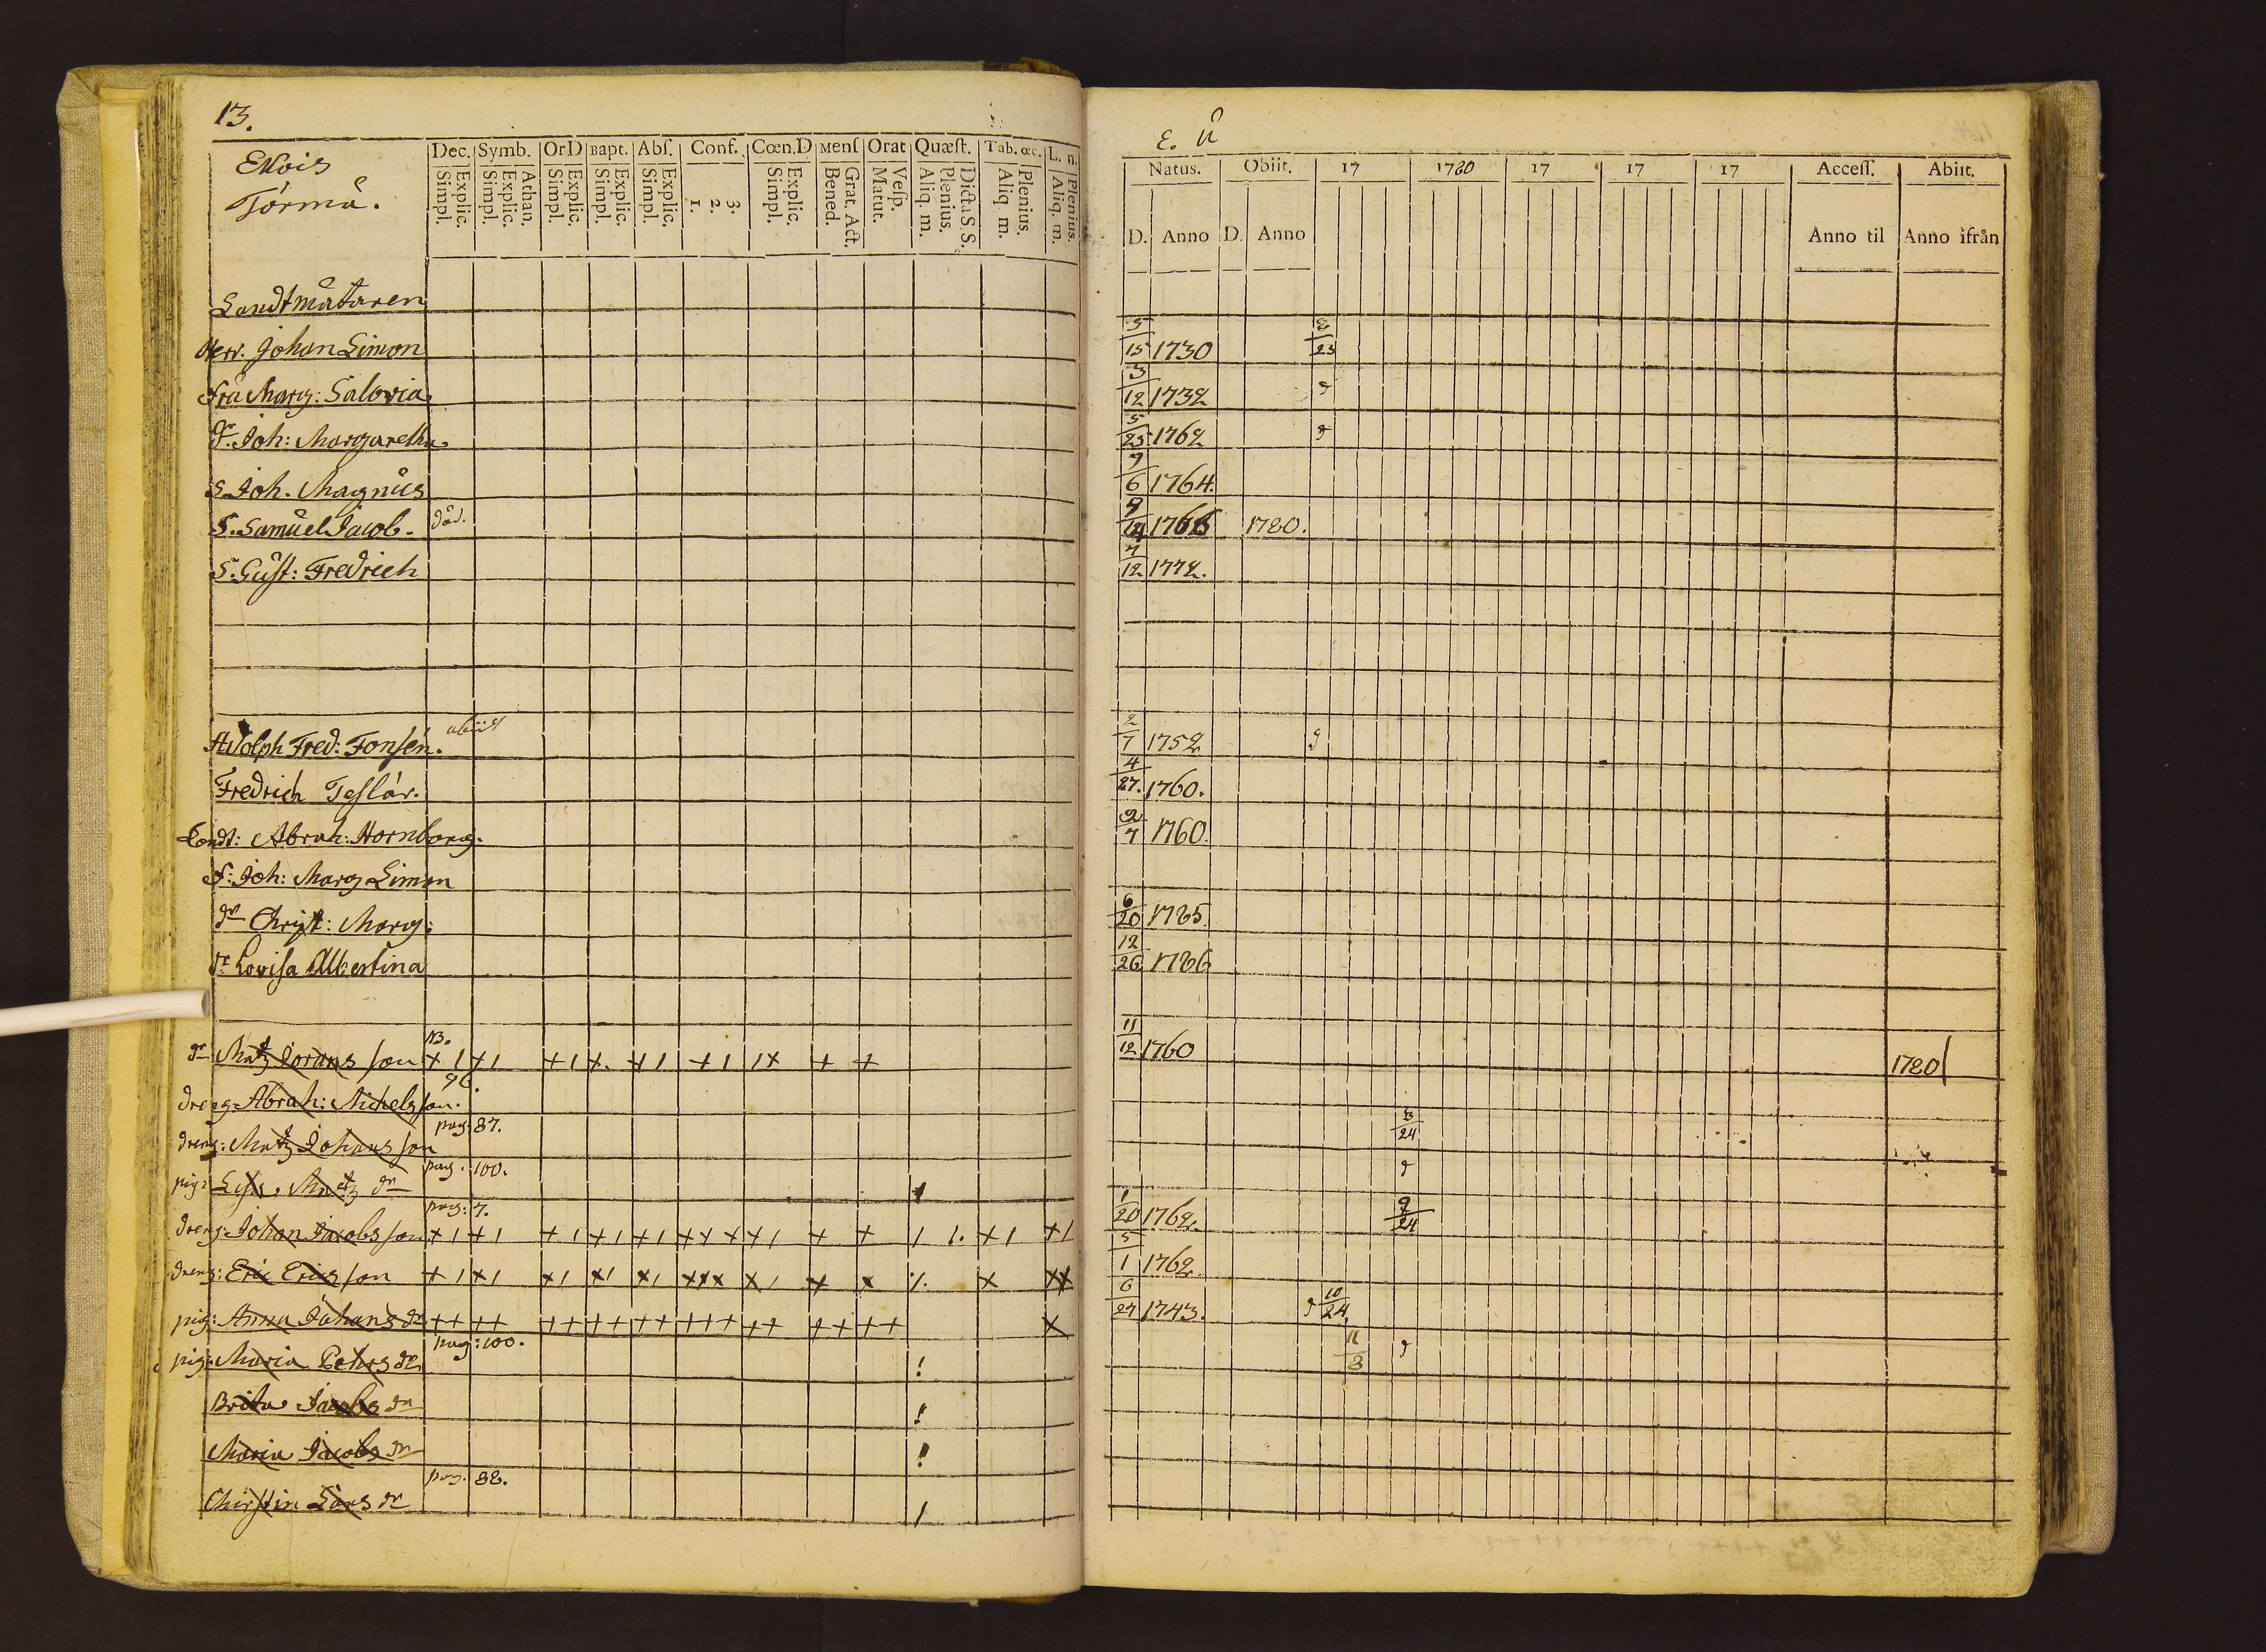 13.
Ekois
Törmä.
Dec. Symb. Or D Bapt. Abs. Conf. Cœn. D Mens Orat Quæst. Tab. œc. L. n.
Explic. Simpl. Athan. Explic. Simpl. Explic. Simpl. Explic. Simpl. Explic. Simpl. 3. 2. 1. Explic. Simpl. Grat. Act. Bened. Vesp. Matut. Dicta S. S. Plenius. Aliq. m. Plenius. Aliq. m. Plenius. Aliq. m.
Landtmätaren
Herr. Johan Limon
Fru Marg: Salovia
dr. Joh: Margaretha.
S. Joh. Magnus
S. Samuel Jacob. död.
S. Gust: Fredrich
Adolph Fred: Fonsén. abiit
Fredrich Teslár.
Condt: Abrah: Hornborg.
F: Joh: Marg Limon
dr Christ: Marg:
dr Lovisa Albertina
Matz Jörans son + 1 + 1 + 1 +. + 1 + 1 1 + + +
96.
dreng: Abrah: Michels son.
pag: 87.
dreng: Matz Johans son
pag. 100.
pig: Lisa Matz dr 1
pag: 7.
dreng: Johan Jacobs son + 1 + 1 + 1 + 1 + 1 + + + + 1 + + 1 1. + 1 + 1
dreng: Eric Erics son + 1 + 1 + 1 + 1 + 1 + + + + 1 + + 1. + + +
pig: Anna Johans dr + + + + + + + + + + + + + + + + + + + +
pag: 100.
pig: Maria Pehrs dr !
Brita Jacobs dr !
Maria Jacobs dr !
pag. 82.
Chirstin Lars dr !
E. Å
Natus. Obiit. 17 1780 17 17 17 Access. Abiit.
D. Anno D. Anno Anno til Anno ifrån
5/15 1730 23
3/12 1732
5/25 1762
9/6 1764.
1766 1780.
7/12 1772.
2/7 1752
4/27. 1760.
2/7 1760.
6/20 1785.
12/26 1786
11/12 1760 1780
3/24
1/20 1762. 2/24
5/1 1762.
6/27 1743. 10/24
11/8